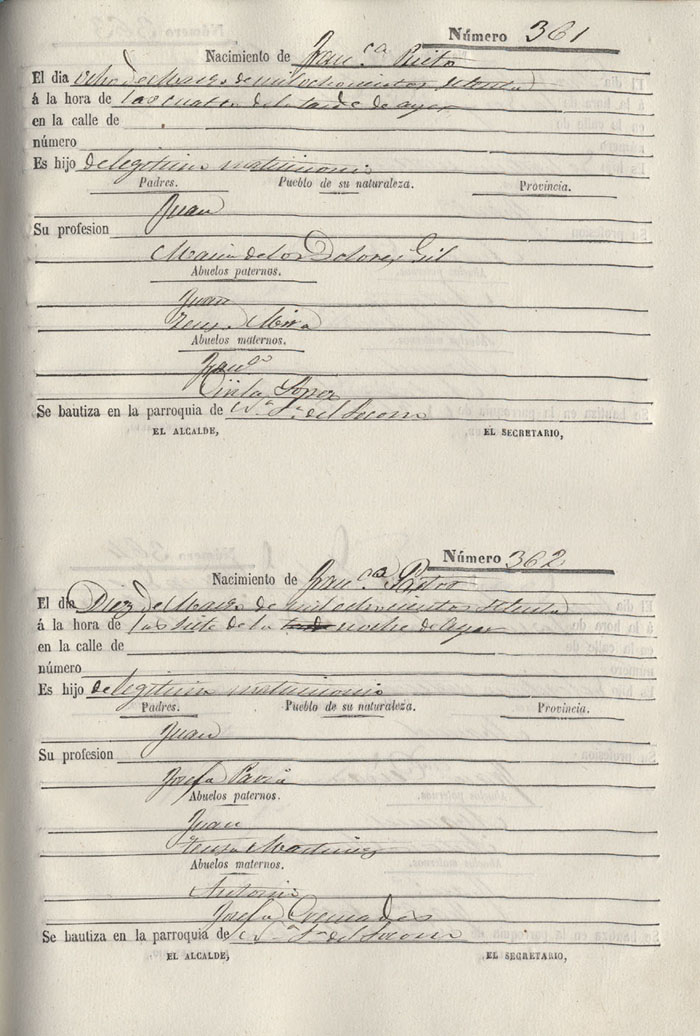 Número 361
Nacimiento de Fran.ca Prieto
El dia ocho de Marzo de mil ochocientos setenta
á la hora de las cuatro de la tarde de ayer
en la calle de
número
Es hijo de legitimo matrimonio
Padres. Pueblo de su naturaleza. Provincia.
Juan
Su profesion
Maria de los Dolores Gil
Abuelos paternos.
Juan
Teresa Mira
Abuelos maternos.
Fran.co
Cinta Lopez
Se bautiza en la parroquia de N.a S.a del Socorro
EL ALCALDE, EL SECRETARIO,
Número 362
Nacimiento de Fran.ca Pastor
El dia Diez de Marzo de mil ochocientos setenta
á la hora de las siete de la tarde noche de Ayer
en la calle de
número
Es hijo de legitimo matrimonio
Padres. Pueblo de su naturaleza. Provincia.
Juan
Su profesion
Josefa Pavia
Abuelos paternos.
Juan
Teresa Martinez
Abuelos maternos.
Antonio
Josefa Quemades
Se bautiza en la parroquia de N.a S.a del Socorro
EL ALCALDE, EL SECRETARIO,